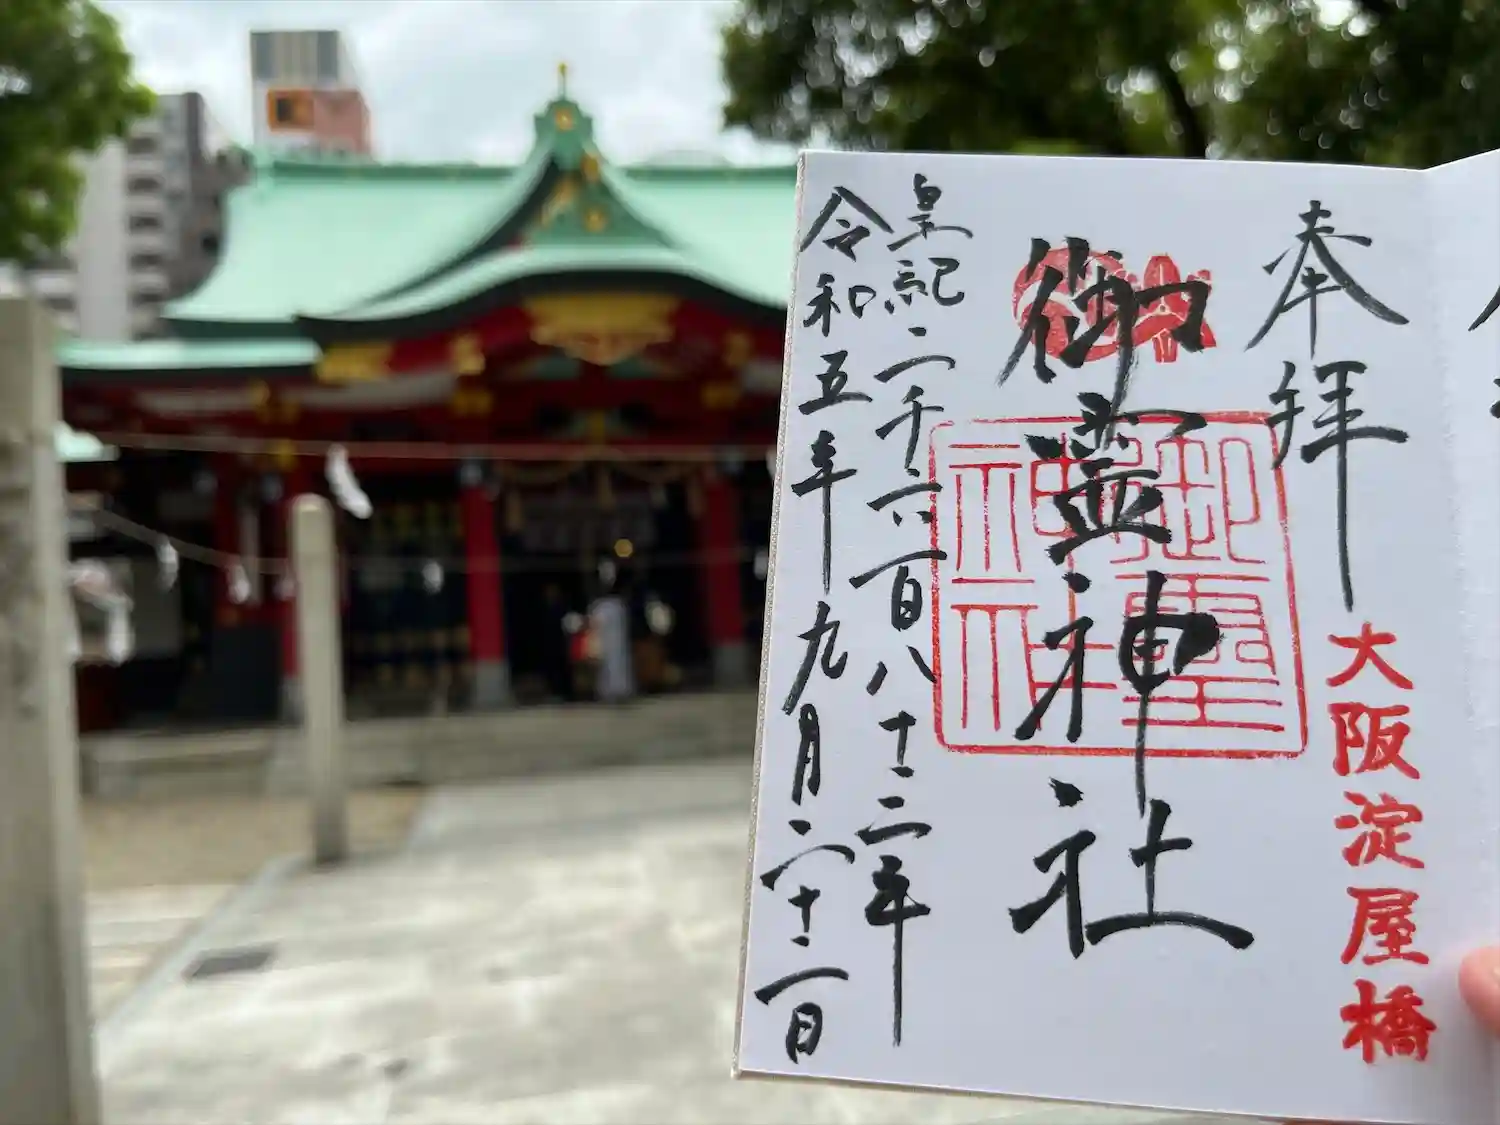 奉拝
大阪淀屋橋
御霊神社
御靈
神社
皇紀二千六百八十三年
令和五年九月二十二日